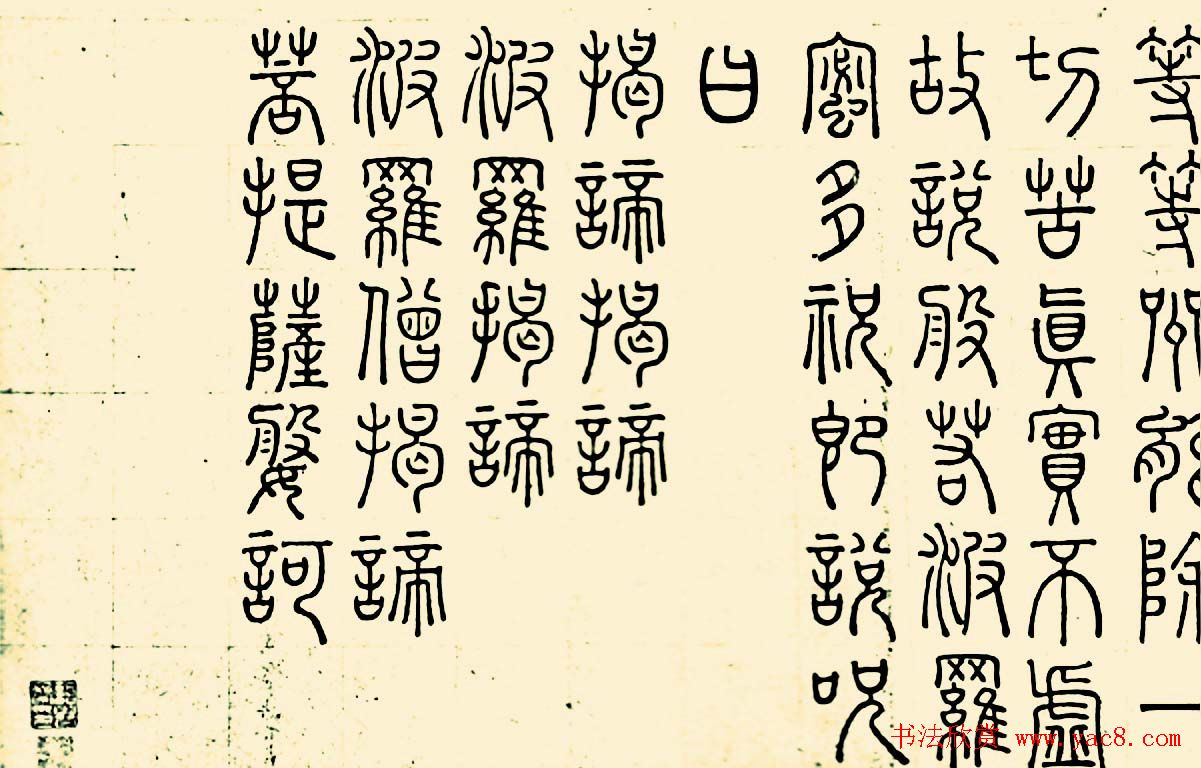 等等咒能除一
切苦眞實不虛
故說般若波羅
蜜多祝即說呪
曰
揭諦揭諦
波羅揭諦
波羅僧揭諦
菩提薩媻訶
书法欣赏 www.yac8.com